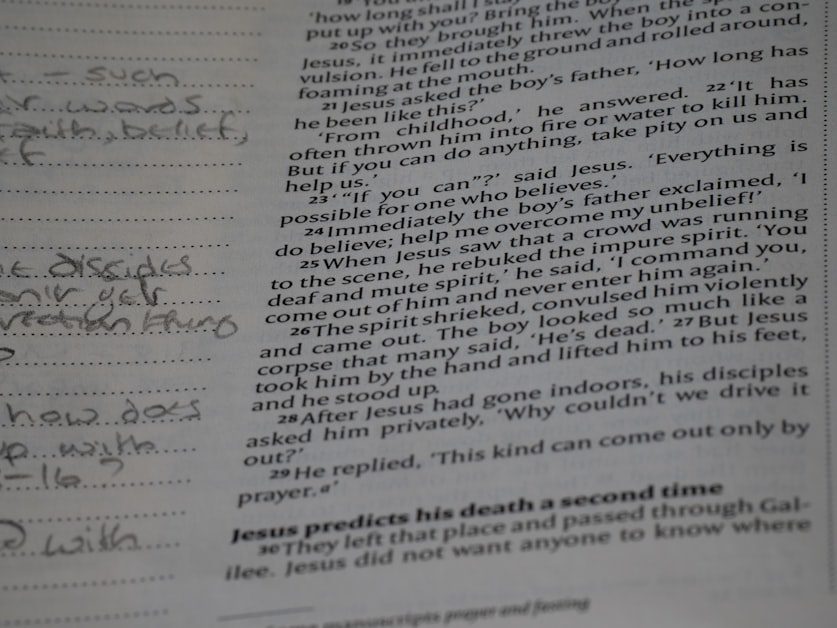 - such
words
faith, belief,
how does
with
-16?
with
'how long shall I
put up with you? Bring the boy
20 So they brought him. When the
Jesus, it immediately threw the boy into a con-
vulsion. He fell to the ground and rolled around,
foaming at the mouth.
21 Jesus asked the boy's father, 'How long has
he been like this?'
'From childhood,' he answered. 22 'It has
often thrown him into fire or water to kill him.
But if you can do anything, take pity on us and
help us.'
23 '"If you can"?' said Jesus. 'Everything is
possible for one who believes.'
24 Immediately the boy's father exclaimed, 'I
do believe; help me overcome my unbelief!'
25 When Jesus saw that a crowd was running
to the scene, he rebuked the impure spirit. 'You
deaf and mute spirit,' he said, 'I command you,
come out of him and never enter him again.'
26 The spirit shrieked, convulsed him violently
and came out. The boy looked so much like a
corpse that many said, 'He's dead.' 27 But Jesus
took him by the hand and lifted him to his feet,
and he stood up.
28 After Jesus had gone indoors, his disciples
asked him privately, 'Why couldn't we drive it
out?'
29 He replied, 'This kind can come out only by
prayer.a'
Jesus predicts his death a second time
30 They left that place and passed through Gal-
ilee. Jesus did not want anyone to know where
manuscripts prayer and fasting